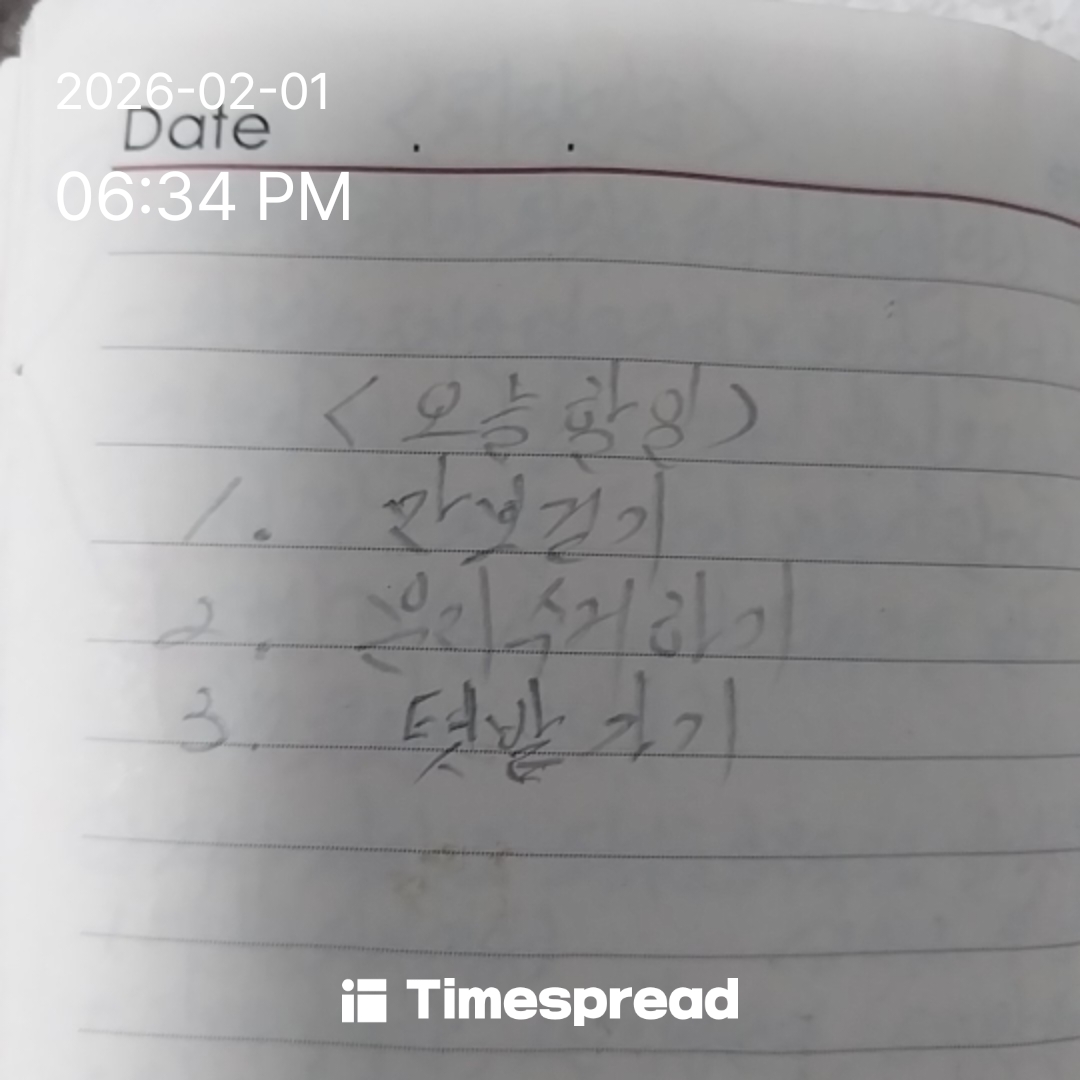 2026-02-01
Date . .
06:34 PM
< 오늘 할일 >
1. 만보걷기
2. 하기
3. 텃밭 가기
Timespread